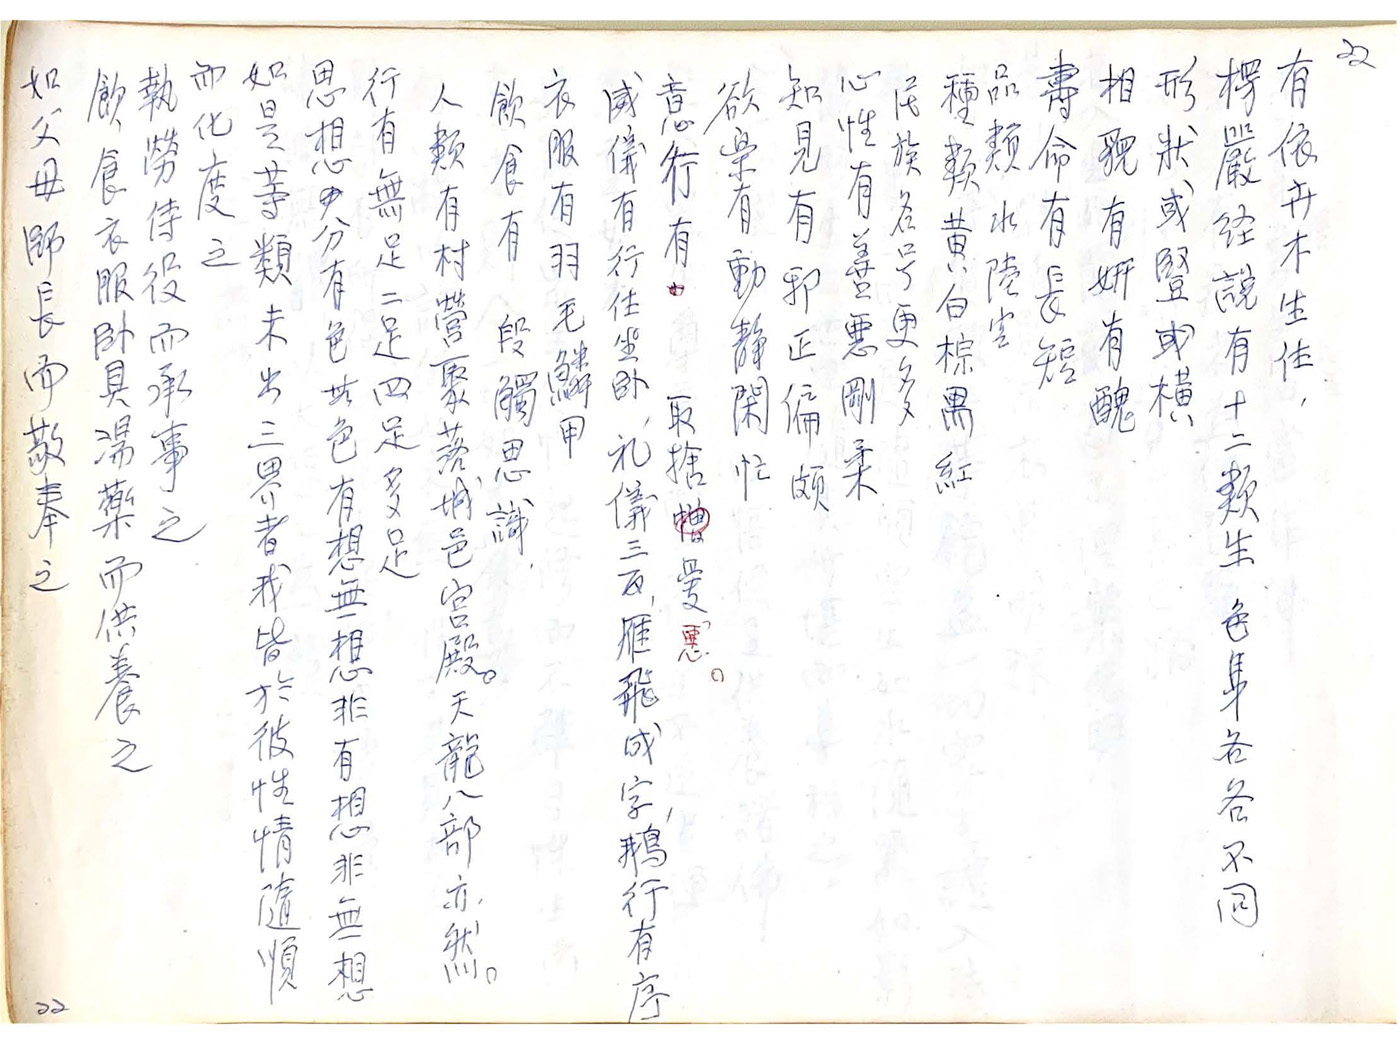 22
有依卉木生住，
楞嚴経說有十二類生 色身各各不同
形狀或豎或橫
相貌有妍有醜
壽命有長短
品類水陸空
種類黃白棕黑紅
民族名号更多
心性有善惡剛柔
知見有邪正偏頗
欲樂有動静閑忙
意行有 取捨 愛惡。
威儀有行住坐卧，礼儀三百，雁飛成字，鵝行有序
衣服有羽毛鱗甲
飲食有 段觸思識，
人類有村營聚落城邑宮殿。天龍八部亦然。
行有無足二足四足多足
思想中分有色无色有想無想非有想非無想
如是等類未出三界者我皆於彼性情隨順
而化度之
執勞侍役而承事之
飲食衣服卧具湯藥而供養之
如父母師長而敬奉之
22